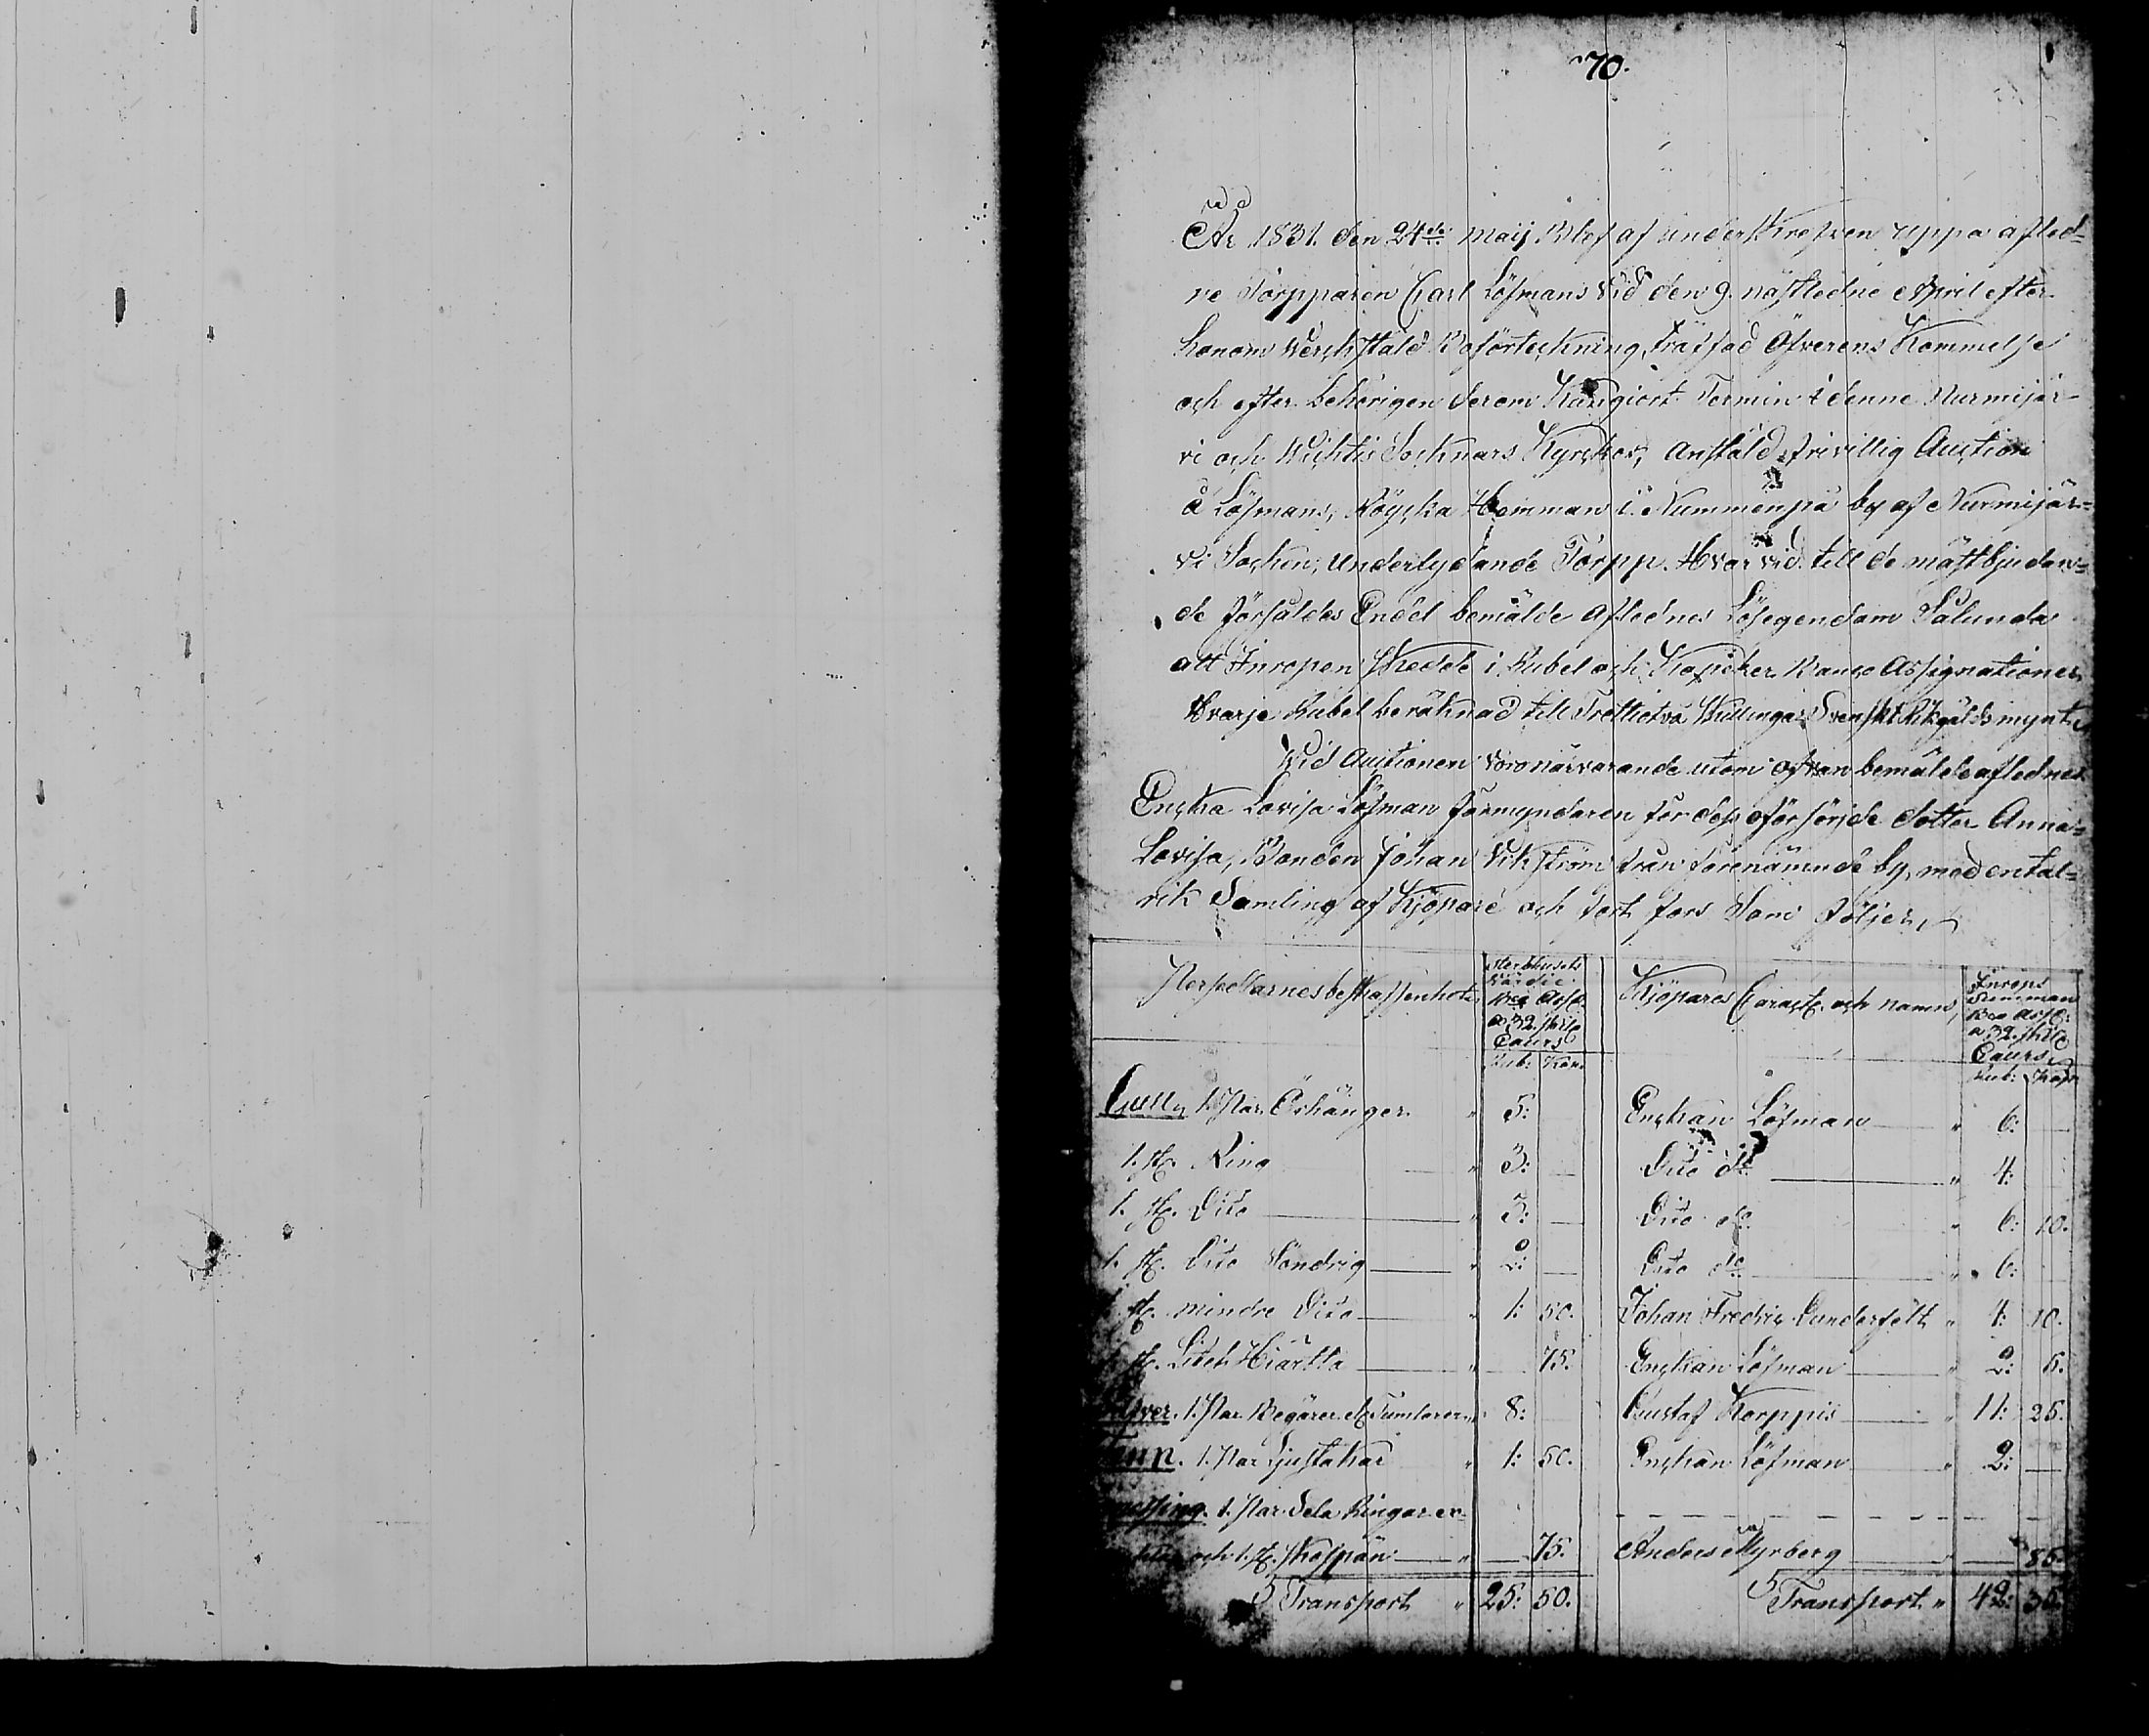 70.
År 1831. den 24de Maij Blef af underskrefven uppå afled-
ne Torpparen Carl Löfmans vid den 9. nästledne April efter
honom verckstäld Boförteckning, träffad Öfverens Kommelse
och efter behörigen derom Kungiort Termin i denne Nurmijär-
vi och Wichtis Socknars Kyrckor, anstäld frivillig Auction
å Löfmans, Röycka Hemman i Nummenpä by af Nurmijär-
vi Socken, underlydande Torpp. Hvar vid till de mästbjudan-
de försåldes Endel bemälde Aflednes Lösegendom Sålunda
att Inropen skedde i Rubel och Kopeker Banco Assignationer
Hvarje Rubel beräknad till Trettietvå Skillingar Svenskt Riksgälds mynt.
Vid Auctionen voro närvarande utom ofvan bemälde aflednes
Enckia Lovisa Löfman förmyndaren för dess oförsörjde dotter Anna
Lovisa, Bonden Johan Vikström från förenämnde by, med en tal-
rik Samling af Kjöpare och fort fors Som följer,
Persedlarnes beskaffenhet
Sterbhusets
Värdie
Bco Assg:
a 32. skill
Cours
Rub: Kop:
Kjöpares Caract. och namn,
Inrops
Summan
Bco Assg:
a 32. skill
Cours
Rub: Kop:
Gull, 1. Par Örhänger " 5: Enckan Löfman " 6:
1. st. Ring " 3: Dito do " 4:
1. st. Dito " 3: Dito do " 6: 10.
1. st. Dito Söndrig " 2: Dito do " 6:
st. mindre Dito " 1: 50. Johan Fredric Dunderfelt " 4: 10.
st. Litet Hiärtta " 75. Enckan Löfman " 2: 5.
1. Par Begärer el. Tumlarer " 8: Gustaf Korppis " 11: 25.
1. Par Ljustakar " 1: 50. Enckan Löfman " 2:
1. Par Sela Ringar
och 1. st. skospän " 75. Anders Myrberg 85.
Transport " 25: 50. Transport " 42: 35.